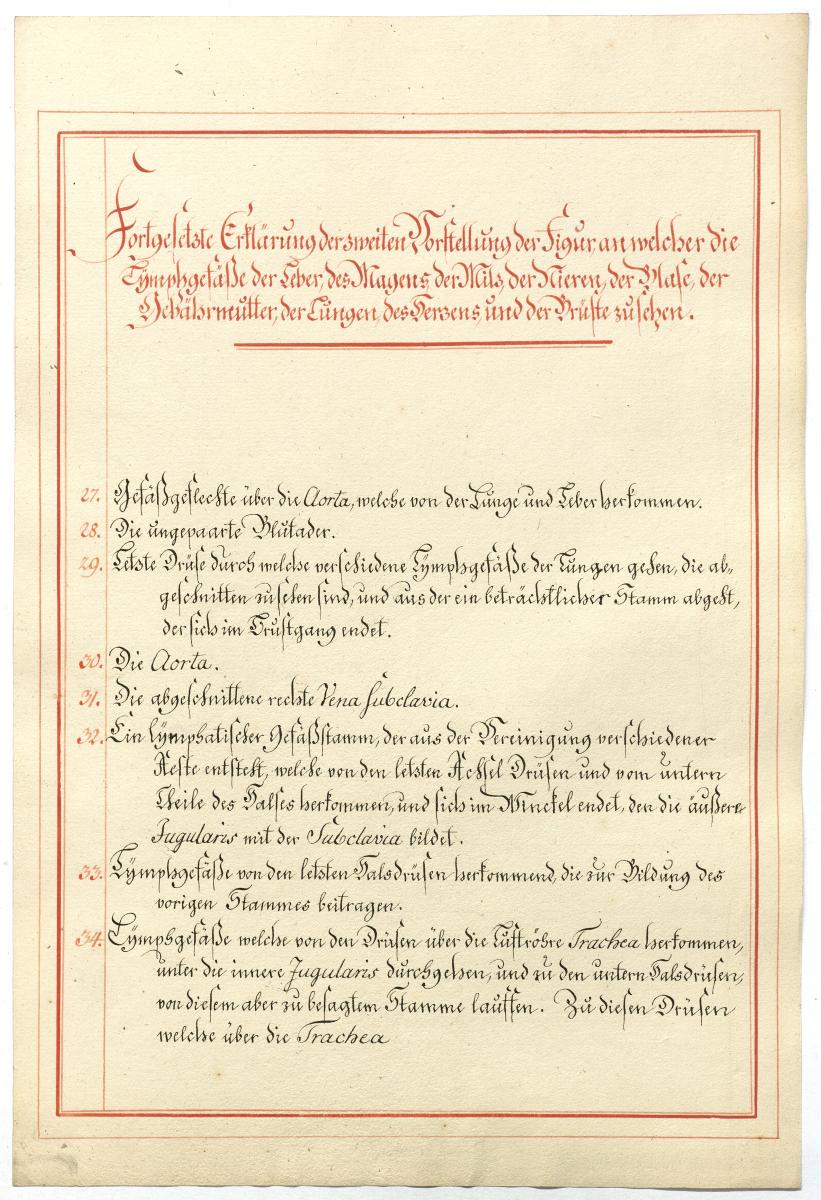 Fortgesetzte Erklärung der zweiten Vorstellung der Figur, an welcher die
Lÿmphgefäße der Leber, des Magens, der Milz, der Nieren, der Blase, der
Gebährmutter, der Lungen, des Herzens, und der Brüste zu sehen.
27. Gefäßgeflechte über die Aorta, welche von der Lunge und Leber herkommen.
28. Die ungepaarte Blutader.
29. Letzte Drüse durch welche verschiedene Lÿmphgefäße der Lungen gehen, die ab-
geschnitten zu sehen sind, und aus der ein beträchtlicher Stamm abgeht,
der sich im Brustgang endet.
30. Die Aorta.
31. Die abgeschnittene rechte Vena Subclavia.
32. Ein lÿmphatischer Gefäßstamm, der aus der Vereinigung verschiedener
Aeste entsteht, welche von den letzten Achsel Drüsen und vom untern
Theile des Halses herkommen, und sich im Winckel endet, den die äußere
Jugularis mit der Subclavia bildet.
33. Lÿmphgefäße von den letzten Halsdrüsen herkommend, die zur Bildung des
vorigen Stammes beitragen.
34. Lÿmphgefäße welche von den Drüsen über die Luftröhre Trachea herkommen,
unter die innere Jugularis durchgehen, und zu den untern Halsdrüsen,
von diesem aber zu besagtem Stamme lauffen. Zu diesen Drüsen
welche über die Trachea